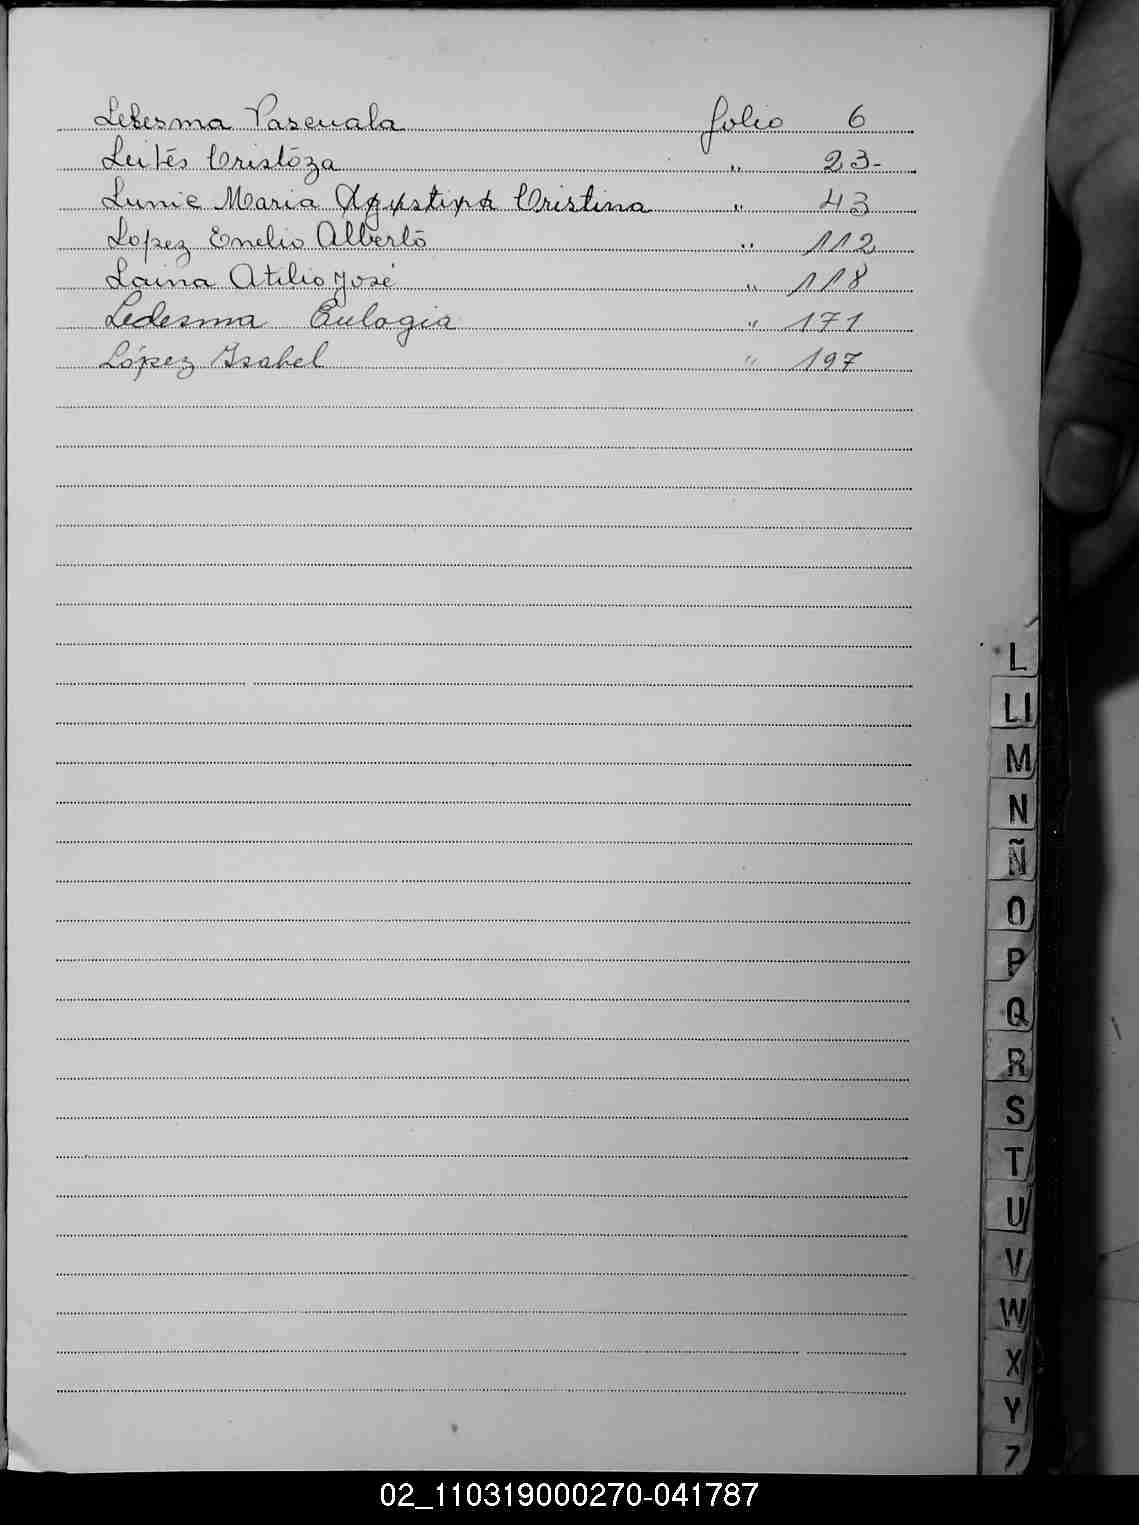 Ledesma Pascuala folio 6
Leités Cristóza " 23-
Lunic Maria Agustina Cristina " 43
Lopez Enelio Alberto " 112
Laina Atilio José " 118
Ledesma Eulogia " 171
López Isabel " 197
L
Ll
M
N
Ñ
O
P
Q
R
S
T
U
V
W
X
Y
Z
02_110319000270-041787